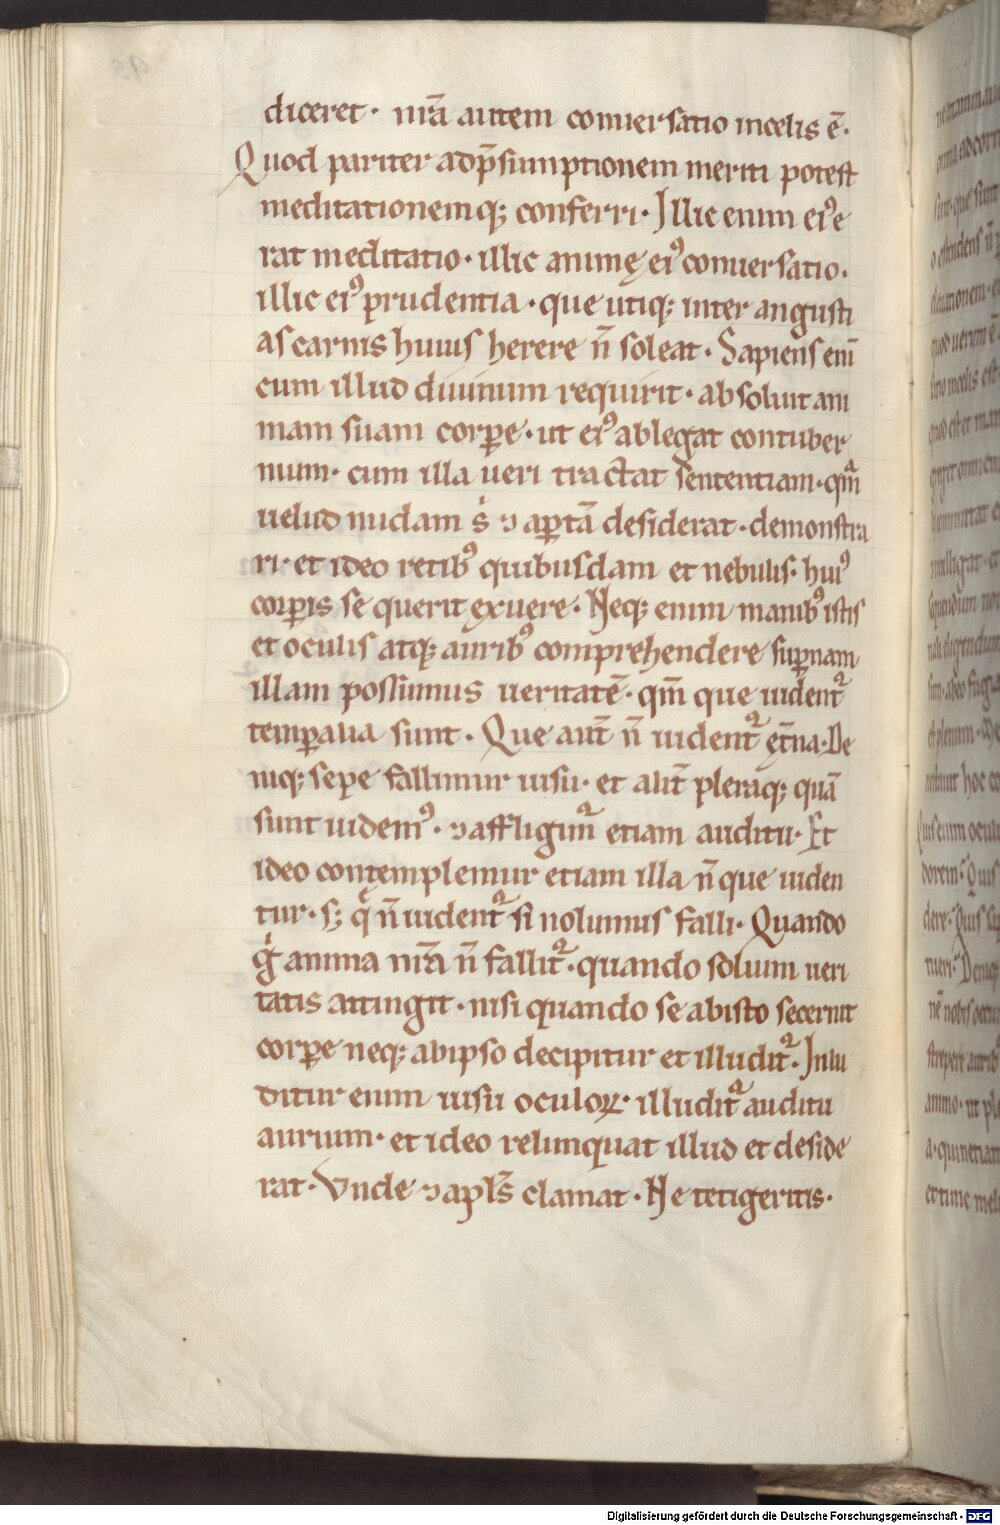 diceret · nr̄a autem conuersatio incelis ē·
Quod pariter adp̄sumptionem meriti potest
meditationemq; conferri · Illic enim eiꝰ e
rat meditatio · illic animę eiꝰ conuersatio ·
illic eiꝰ prudentia · que utiq; inter angusti
as carnis huius herere n̄ soleat · Sapiens eni̅
cum illud diuinum requirit · absoluit ani
mam suam corpꝑe · ut eiꝰ ablegat contuber
nium · cum illa ueri tractat sententiam · qm̄
uelud nudam s̓ ꝛ aꝑtā desiderat · demonstra
ri · et ideo retibꝰ quibusdam et nebulis · huiꝰ
corꝑis se querit exuere · Neq; enim manibꝰ istis
et oculis atq; auribꝰ comprehendere suꝑnam
illam possumus ueritatē · qm̄ que uident᷑
temꝑalia sunt · Que aut̄ n̄ uident᷑ ęt̄na · De
niq; sepe fallimur uisu · et alit̄ pleraq; quā
sunt uidemꝰ · ꝛ affligim᷑ etiam auditu · Et
ideo contemplemur etiam illa n̄ que uiden
tur · s; q̨ n̄ uident᷑ si nolumus falli · Quando
g̓ anima nr̄a n̄ fallit᷑ · quando solium ueri
tatis attingit · nisi quando se abisto secernit
corꝑe neq; abipso decipitur et illudit᷑ · Inlu
ditur enim uisu oculoꝝ · illudit᷑ auditu
aurium · et ideo relinquat illud et deside
rat · Vnde ꝛ apl̄s clamat · Ne tetigeritis ·
Digitalisierung gefördert durch die Deutsche Forschungsgemeinschaft - DFG